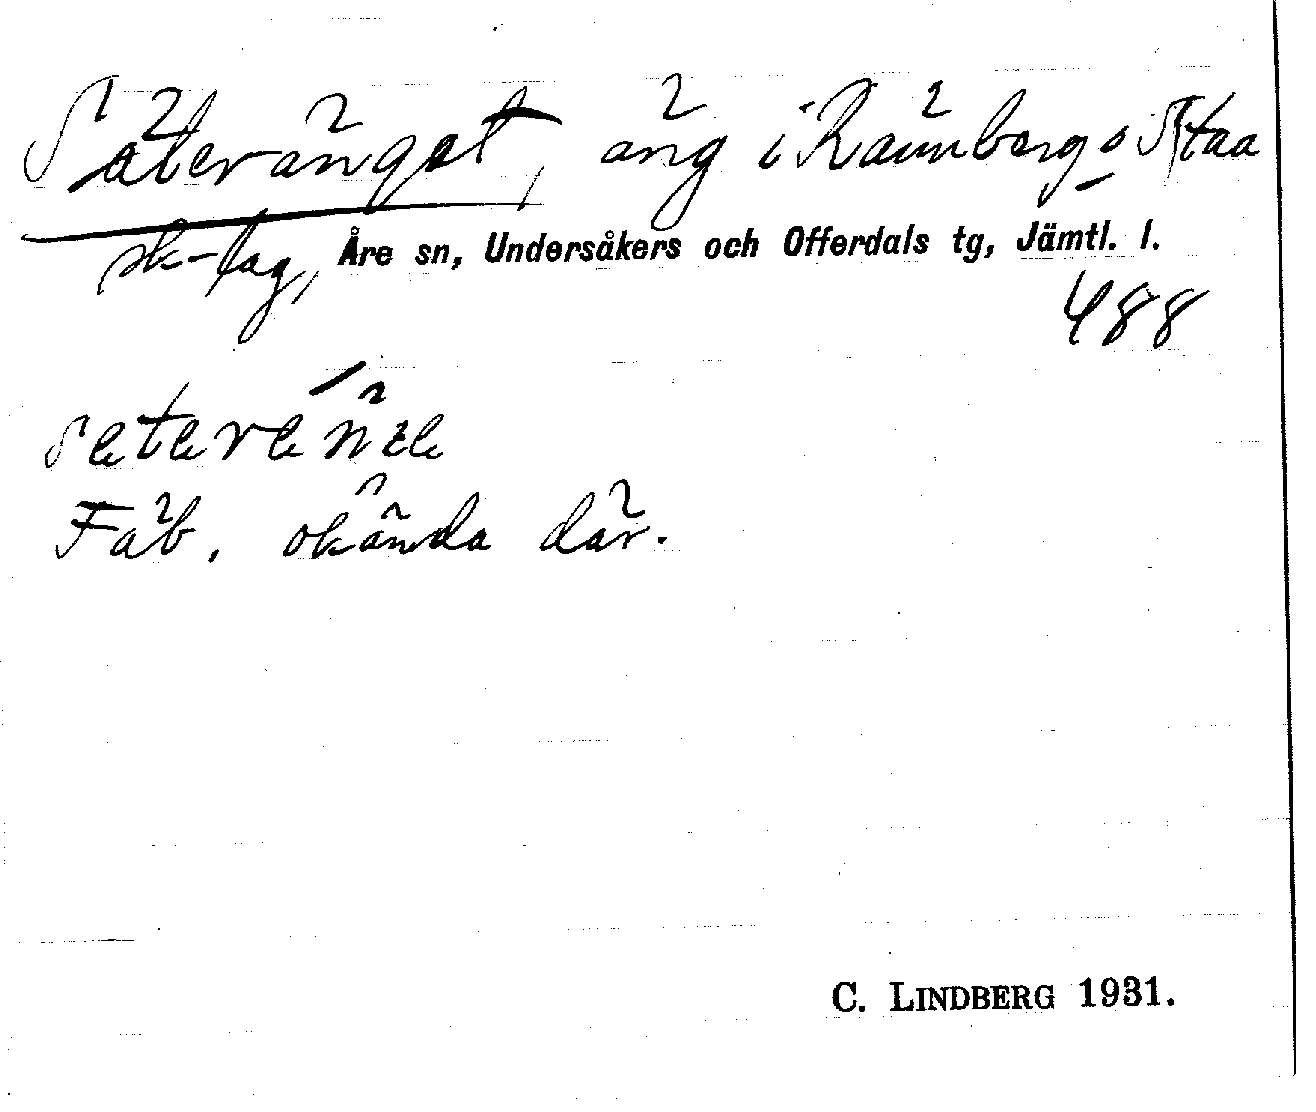 Säterängét, äng i Rännbergs o Staa
sk-lag, Åre sn, Undersåkers och Offerdals tg, Jämtl. l.
488
seterèn̂
Fäb. okända där.
C. Lindberg 1931.